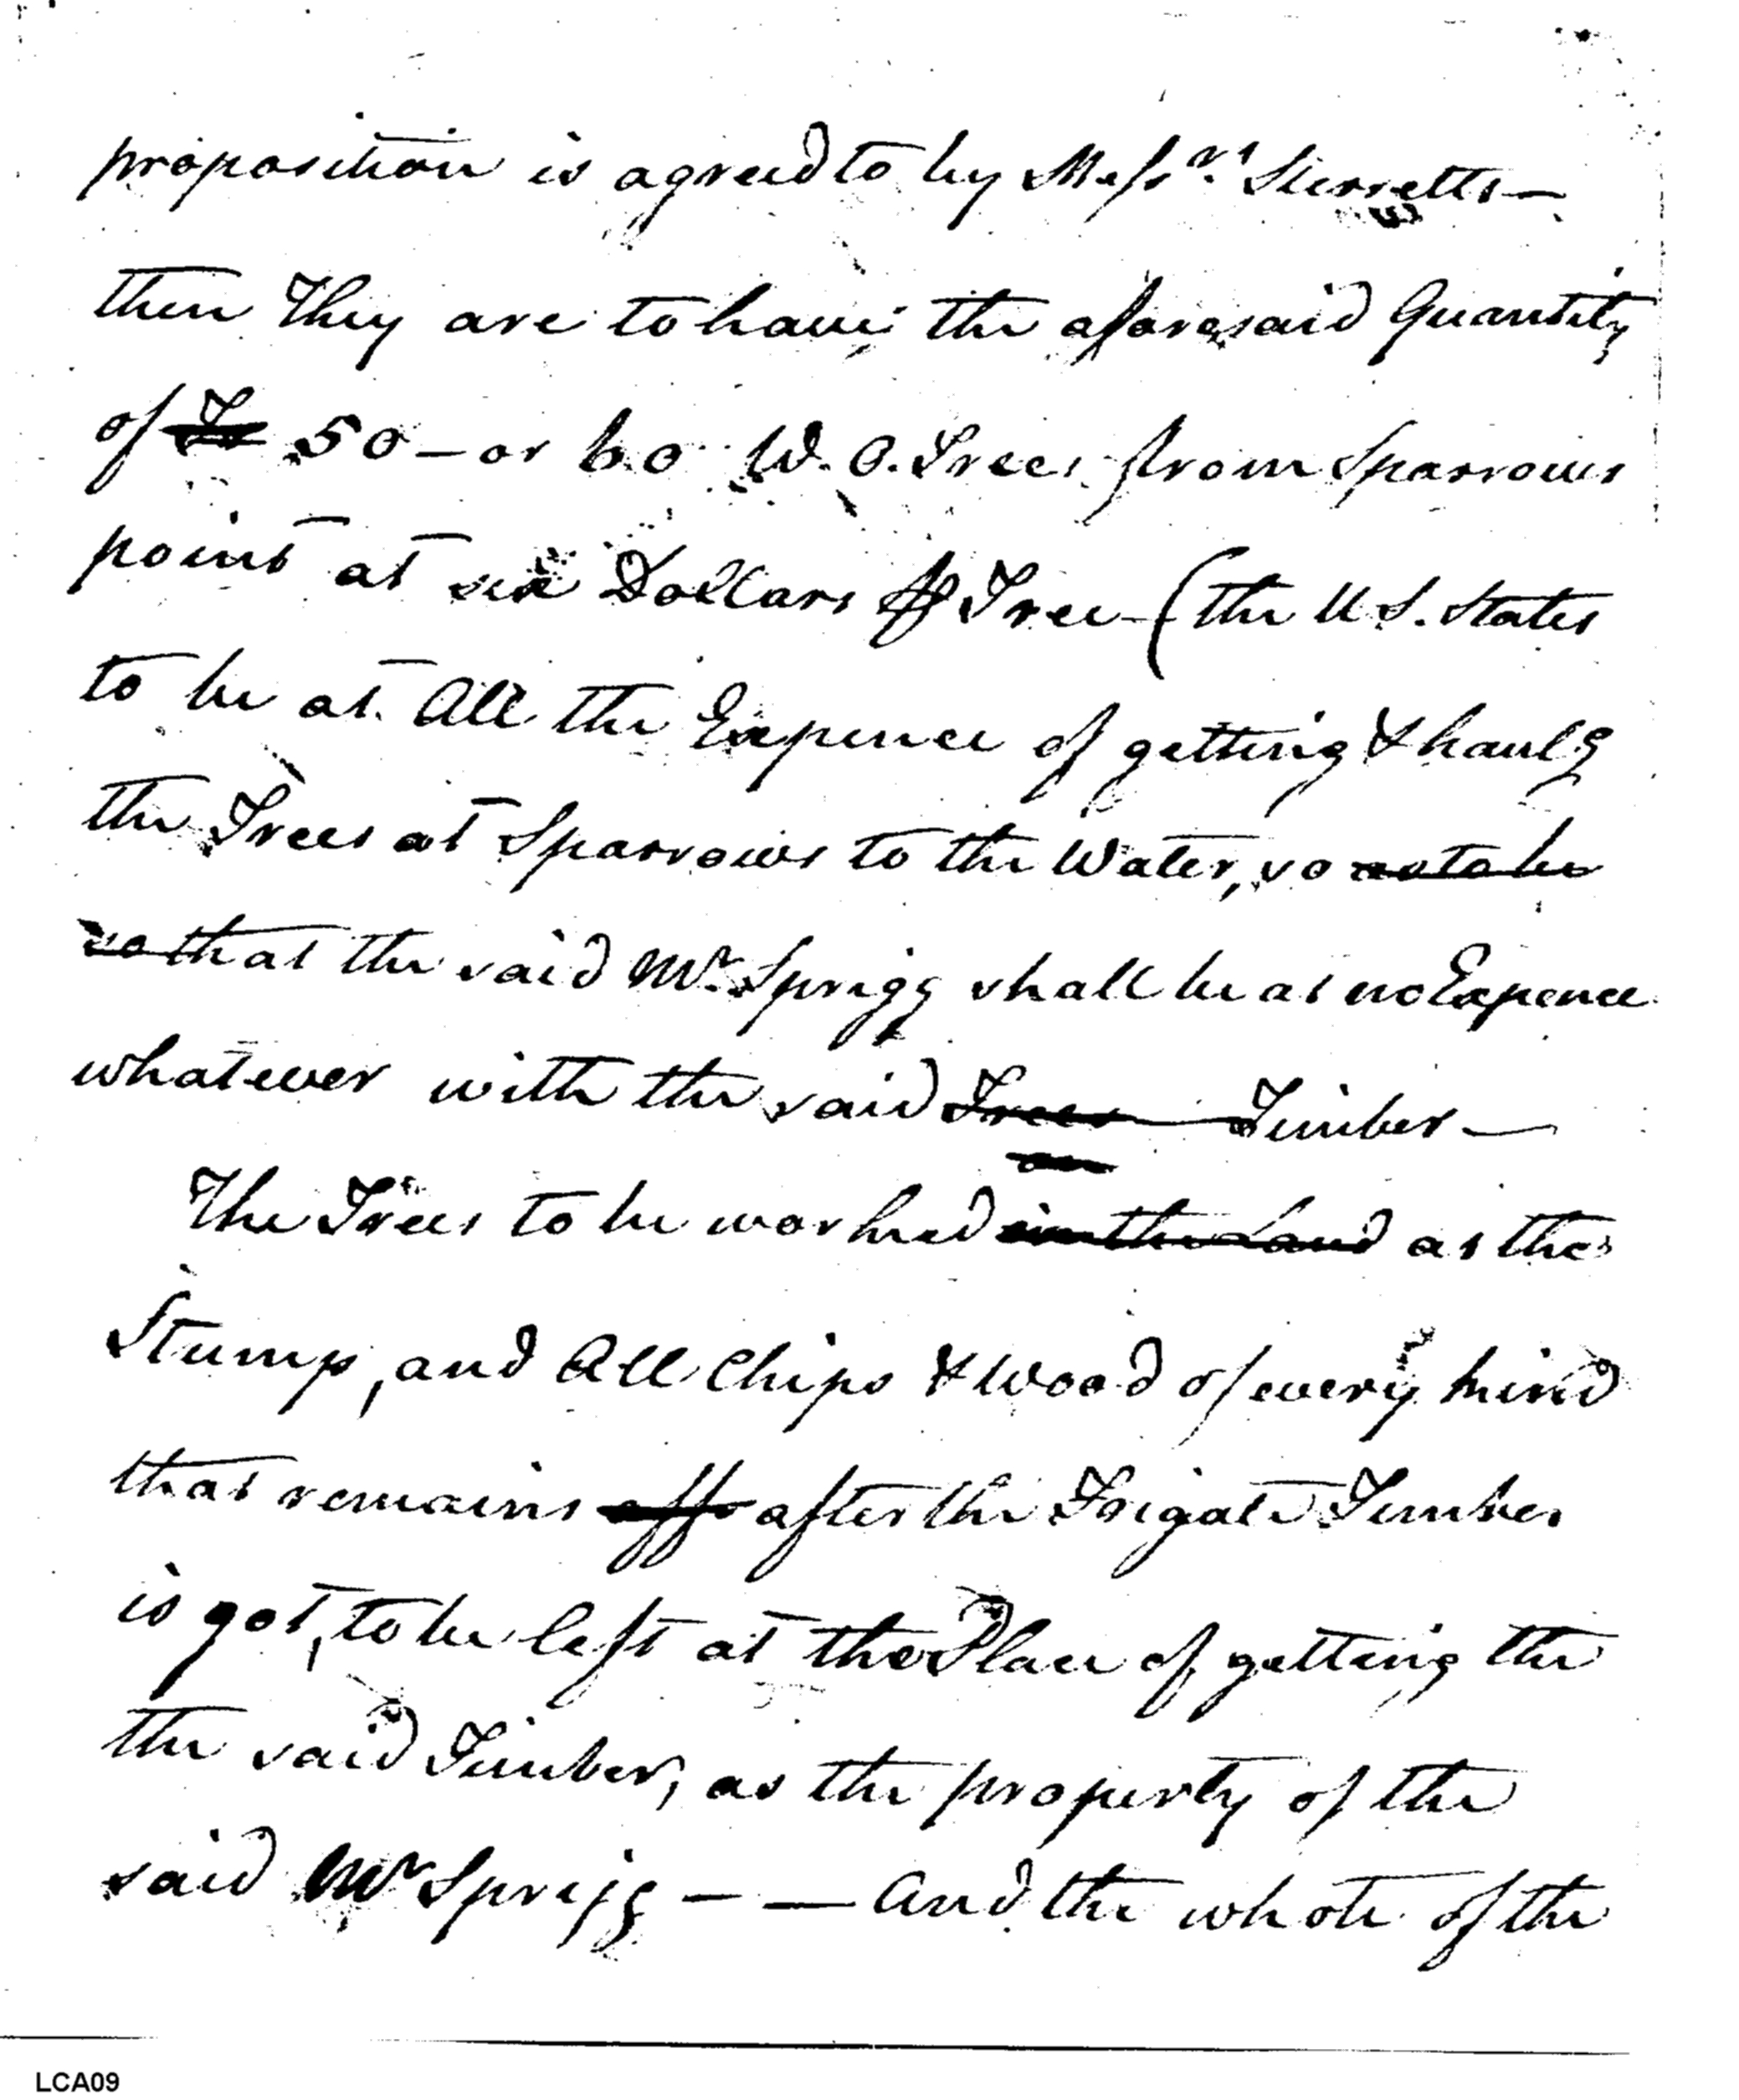 proposition is agreed to by Messrs. Sterretts —
then They are to have the aforesaid Quantity
of Tr 50 — or 60 W. O. Trees from Sparrows
point at six Dollars ⅌ Tree — (the U S. States
to be at All the Expence of getting & haulg
the Trees at Sparrows to the Water, so as to be
so that the said Mr. Sprigg shall be at no Expence
whatever with the said Trees — Timber —
on
The Trees to be worked in the land at the
Stump, and All Chips & Wood of every kind
that remains off after the Frigate Timber
is got, to be left at the Place of getting the
the said Timber, as the property of the
said Mr Sprigg — — And the whole of the
LCA09